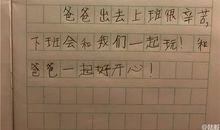 爸爸出去上班很辛苦,
下班会和我们一起玩! 和
爸爸一起好开心!